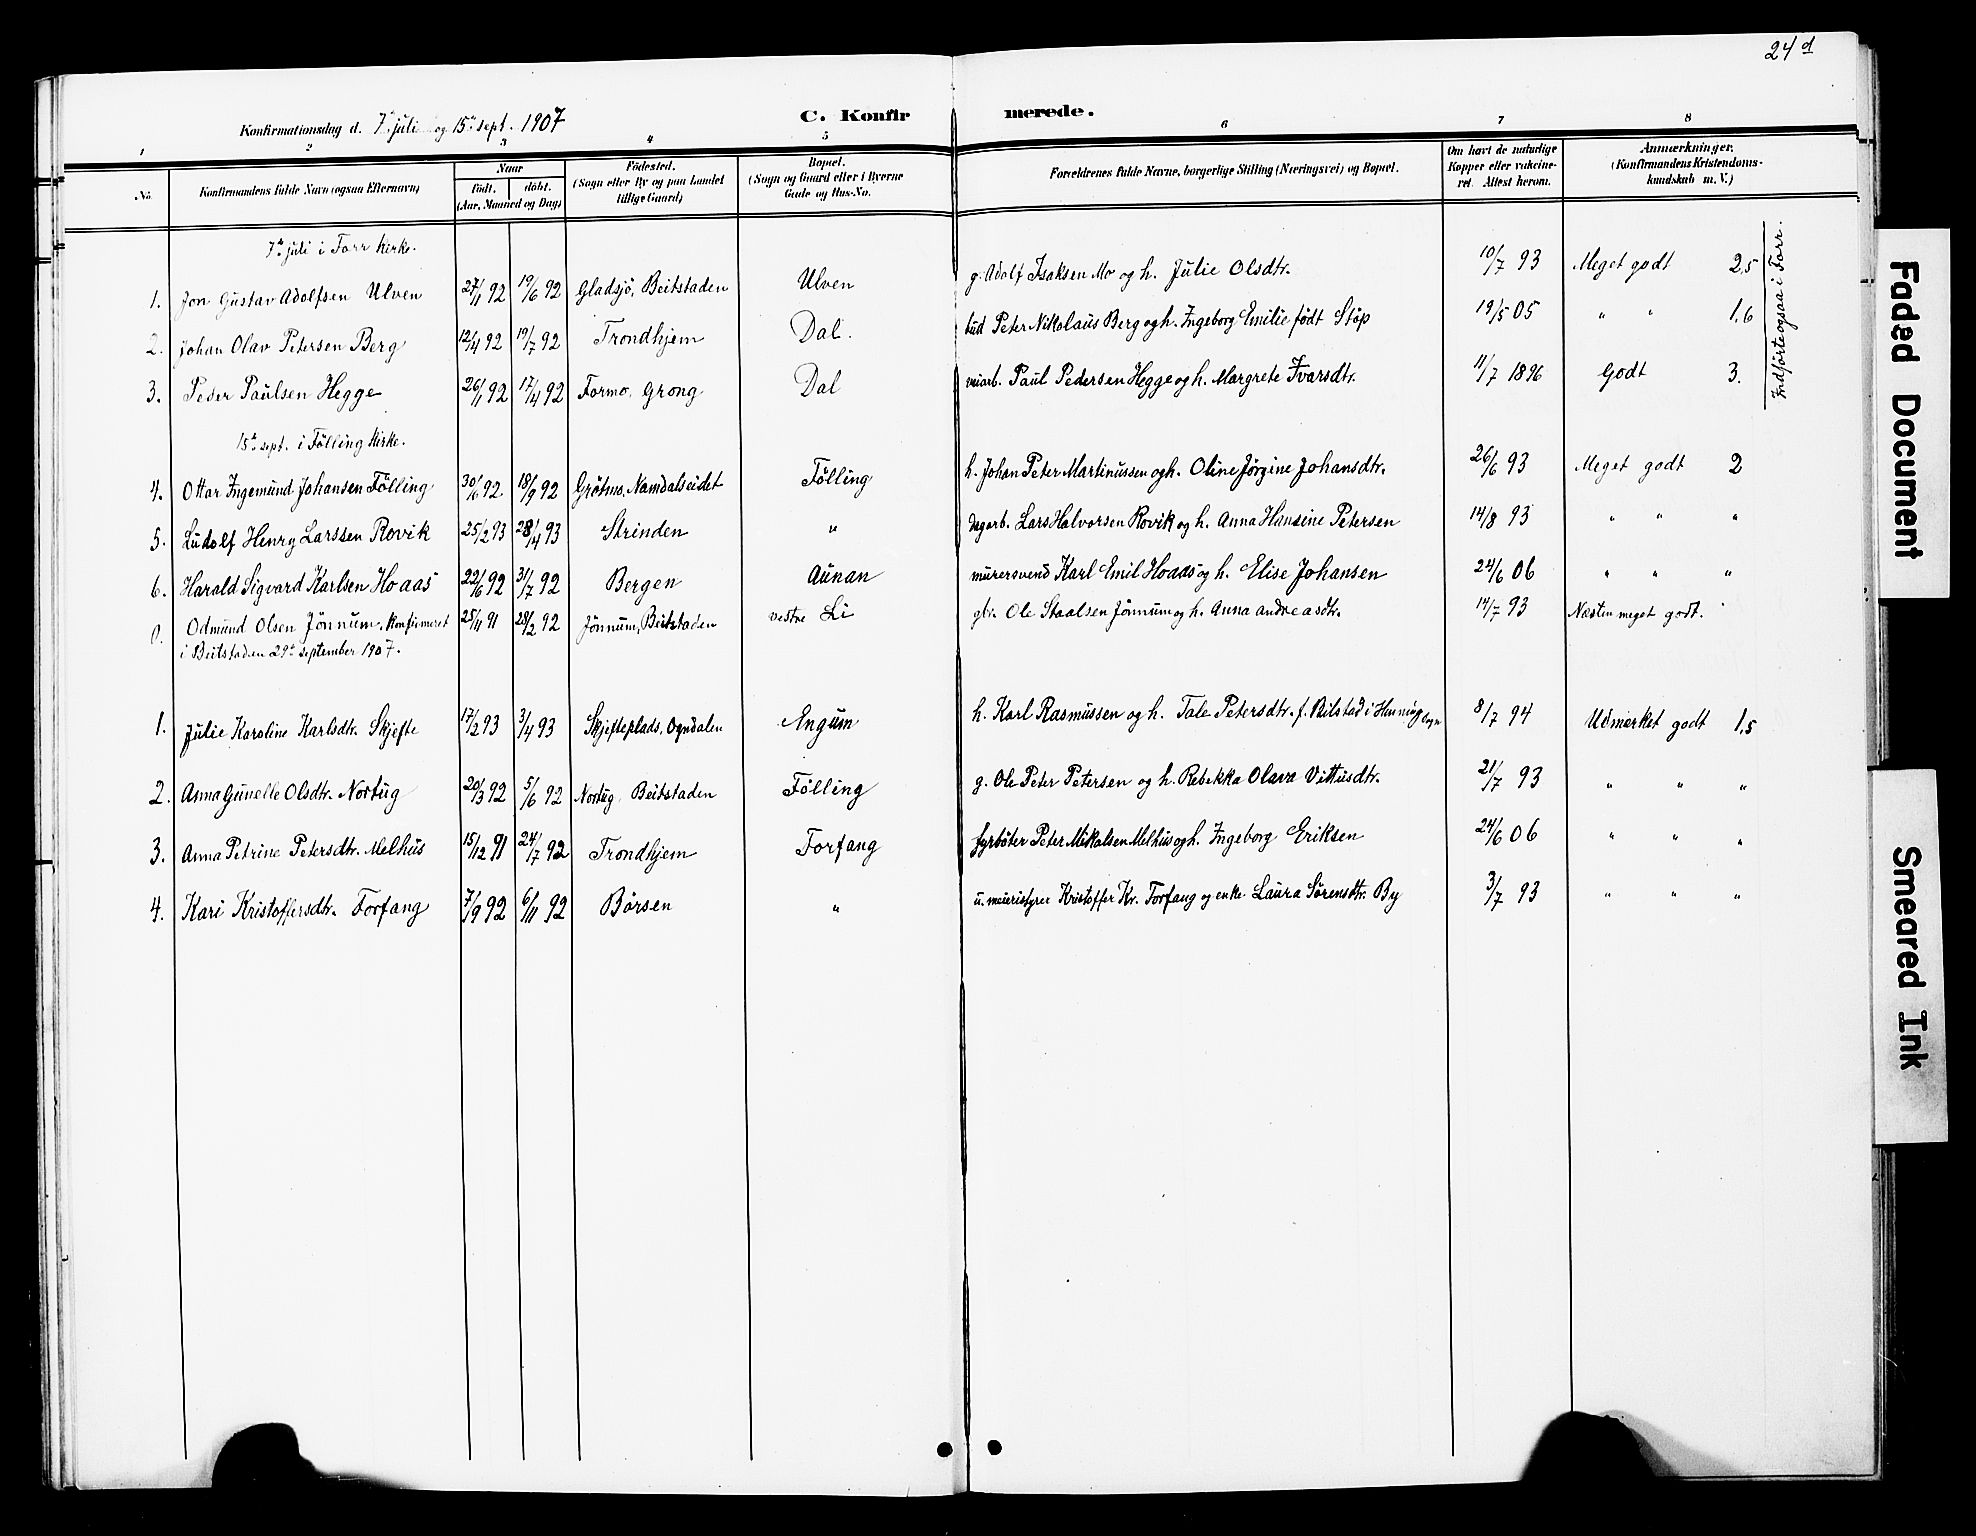 24 d
Konfirmationsdag d. 7de juli og 15de sept. 1907
C. Konfirmerede.
1 2 3 4 5 6 7 8
No.
Konfirmandens fulde Navn (ogsaa Efternavn)
Naar
født. døbt.
(Aar, Maaned og Dag)
Fødested.
(Sogn eller By og paa Landet
tillige Gaard)
Bopæl.
(Sogn og Gaard eller i Byerne
Gade og Hus-No.
Forældrenes fulde Navne, borgerlige Stilling (Næringsvei) og Bopæl.
Om havt de naturlige
Kopper eller vakcine-
ret. Attest herom.
Anmærkninger.
(Konfirmandens Kristendoms-
kundskab m. V.)
7de juli i Forr kirke.
1. Jon Gustav Adolfsen Ulven 27/1 92 19/6 92 Gladsjö, Beitstaden Ulven g. Adolf Isaksen Mo og h. Julie Olsdtr. 10/7 93 Meget godt 2,5
2. Johan Olav Petersen Berg 12/4 92 19/7 92 Trondhjem Dal. Peter Nikolaus Berg og h. Ingeborg Emilie født Støp 19/5 05 " " 1,6
3. Peder Paulsen Hegge 26/1 92 17/4 92 Formo, Grong Dal veiarb. Paul Pedersen Hegge og h. Margrete Ivarsdtr. 11/7 1896 Godt 3.
Indførte ogsaa i Forr.
15de sept. i Følling kirke.
4. Ottar Ingemund Johansen Følling 30/6 92 18/9 92 Grötmo, Namdalseidet Følling h. Johan Peter Martinussen og h. Oline Jørgine Johansdtr. 26/6 93 Meget godt 2
5. Ludolf Henry Larssen Rovik 25/2 93 28/4 93 Strinden " dagarb. Lars Halvorsen Rovik og h. Anna Hansine Petersen 14/8 93 " " "
6. Harald Sigvard Karlsen Hoaas 22/6 92 31/7 92 Bergen Aunan murersvend Karl Emil Hoaas og h. Elise Johansen 24/6 06 " " "
0. Odmund Olsen Jönnum, konfirmeret 25/11 91 28/2 92 Jönnum, Beitstaden vestre Li gbr. Ole Staalsen Jönnum og h. Anna Andreasdtr. 14/7 93 Næsten meget godt.
i Beitstaden 29de september 1907.
1. Julie Karoline Karlsdtr. Skjefte 17/2 93 3/4 93 Skjefteplads, Ogndalen Engum h. Karl Rasmussen og h. Tale Petersdtr. f. Bilstad i Henning sogn 8/7 94 Udmærket godt 1,5
2. Anna Gunelle Olsdtr. Nortug 20/3 92 5/6 92 Nortug, Beitstaden Følling g. Ole Peter Petersen og h. Rebekka Olava Vittusdtr. 21/7 93 " " "
3. Anna Petrine Petersdtr. Melhus 15/12 91 24/7 92 Trondhjem Forfang fyrbøter Peter Mikalsen Melhus og h. Ingeborg Eriksen 24/6 06 " " "
4. Kari Kristoffersdtr. Forfang 7/9 92 6/11 92 Børsen " u. meieristyrer Kristoffer Kr. Forfang og enke Laura Sørensdtr. By 3/7 93 " " "
Faded Document
Smeared Ink